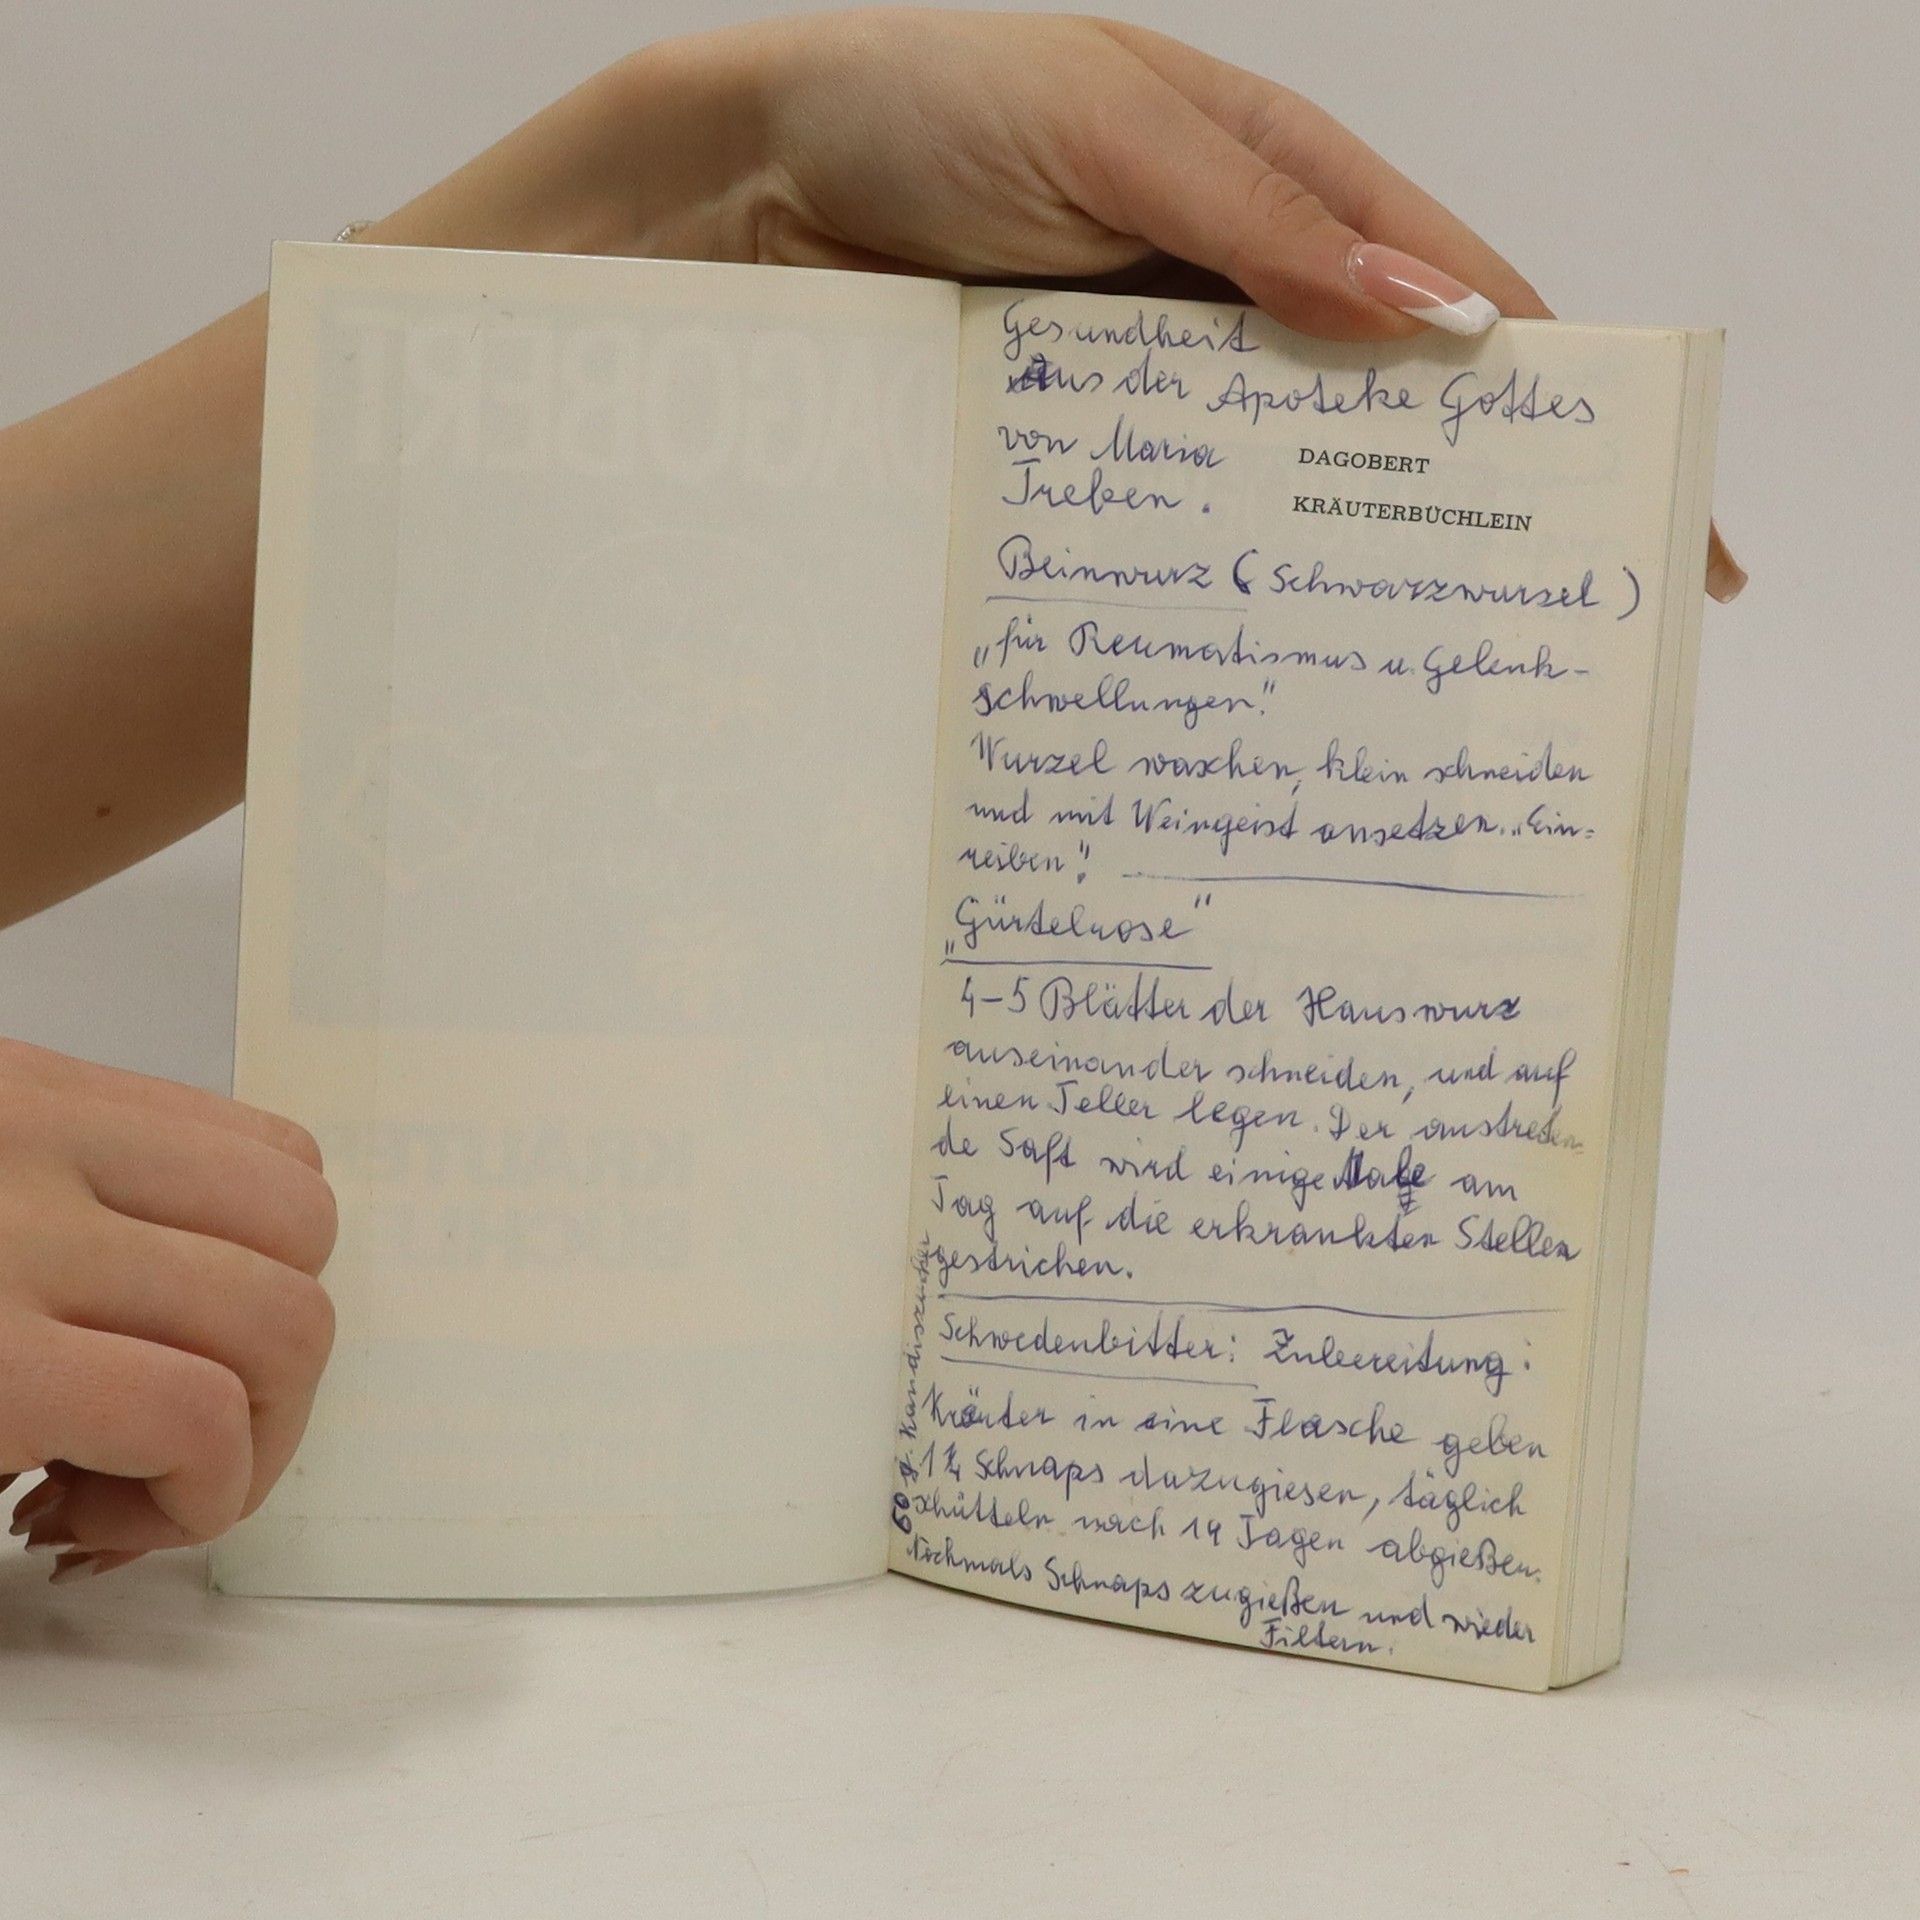 Gesundheit
Aus der Apoteke Gottes
von Maria
Treben.
DAGOBERT
KRÄUTERBÜCHLEIN
Beinwurz (Schwarzwurzel)
„für Reumatismus u. Gelenk-
schwellungen."
Wurzel waschen, klein schneiden
und mit Weingeist ansetzen. „Ein=
reiben".
„Gürtelrose"
4-5 Blätter der Hauswurz
auseinander schneiden, und auf
einen Teller legen. Der austreten=
de Saft wird einige Male am
Tag auf die erkrankten Stellen
gestrichen.
Schwedenbitter: Zubereitung:
Kräuter in eine Flasche geben
1 Schnaps dazugiesen, täglich
schütteln nach 14 Tagen abgießen.
Nochmals Schnaps zugießen und wieder
Filtern.
60 g. Kandiszucker